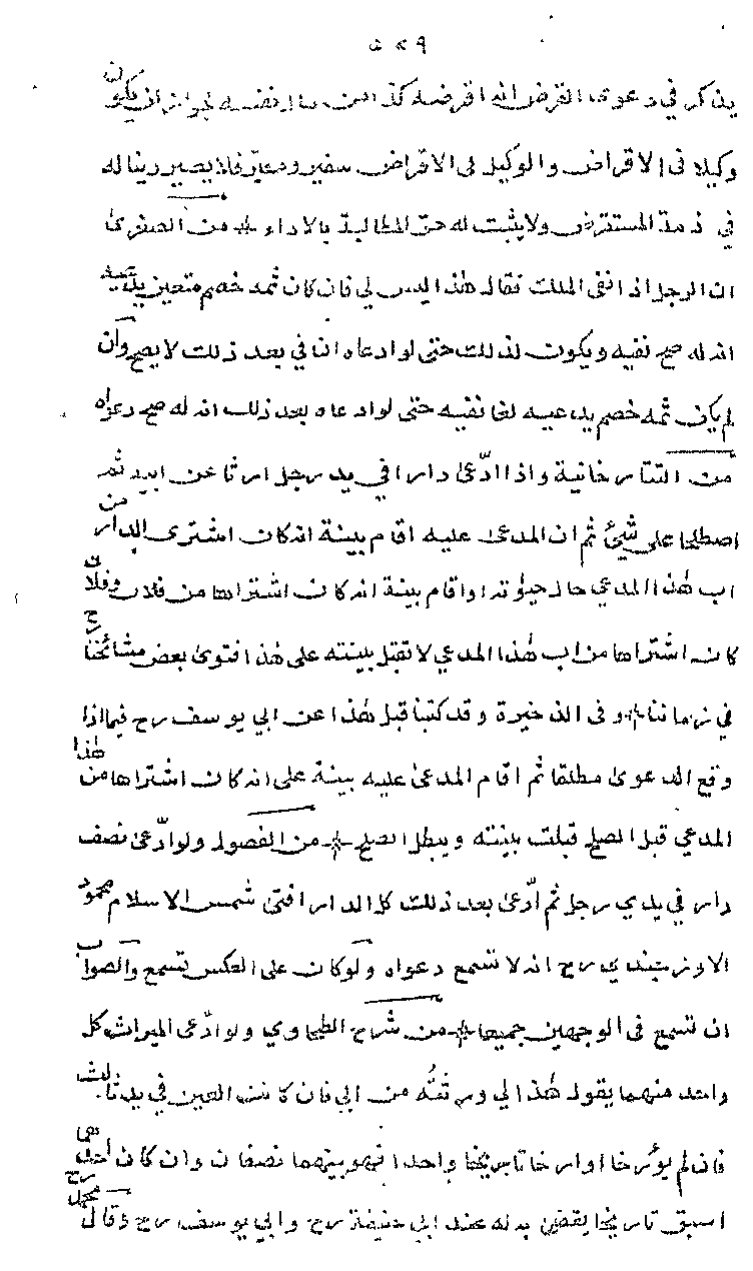 ٥٢٩
يذكر في دعوى القرض انه اقرضه كذا من مال نفسه لجواز ان يكون
وكيلا فى الاقراض والوكيل فى الاقراض سفير ومعبّر فلا يصير دينا له
في ذمة المستقرض ولا يثبت له حق المطالبة بالاداء من الصغرىٰ
ان الرجل اذا نفى الملك فقال هٰذا ليس لي فان كان ثمه خصم متعين يدّعيه
انه له صح نفيه ويكون لذلك حتى لو ادعاه انا في بعد ذلك لا يصح وان
لم يكن ثمه خصم يدعيه لغا نفيه حتى لو ادعاه بعد ذلك انه له صح دعواه
من التتارخانية واذا ادّعىٰ دارا في يد رجل ارثا عن ابيه ثم
اصطلحا على شئ ثم ان المدعىٰ عليه اقام بينة انه كان اشترى الدار من
اب هٰذا المدعي حال حيوٰته او اقام بينة انه كان اشتراها من فلان وفلان
كان اشتراها من اب هٰذا المدعي لا تقبل بينته على هٰذا افتوىٰ بعض مشائخنا رح
في زماننا وفى الذخيرة وقد كتبنا قبل هٰذا عن ابي يوسف رح فيما اذا
وقع الدعوىٰ مطلقا ثم اقام المدعىٰ عليه بينة على انه كان اشتراها من هٰذا
المدعي قبل الصلح قبلت بينته ويبطل الصلح من الفصول ولو ادّعىٰ نصف
دار في يدي رجل ثم ادّعىٰ بعد ذلك كل الدار افتىٰ شمس الاسلام محمود
الاوزجندي رح انه لا تسمع دعواه ولو كان على العكس تسمع والصواب
ان تسمع فى الوجهين جميعا من شراح الطحاوي ولو ادّعى الميراث كل
واحد منهما يقول هٰذا لي ورثتُه من ابي فان كانت العين في يد ثالث
فان لم يؤرخا او ارخا تاريخا واحدا فهو بينهما نصفان وان كان احدهما
اسبق تاريخا يقضىٰ به له عند ابي حنيفة رح وابي يوسف رح وقال محمد رح